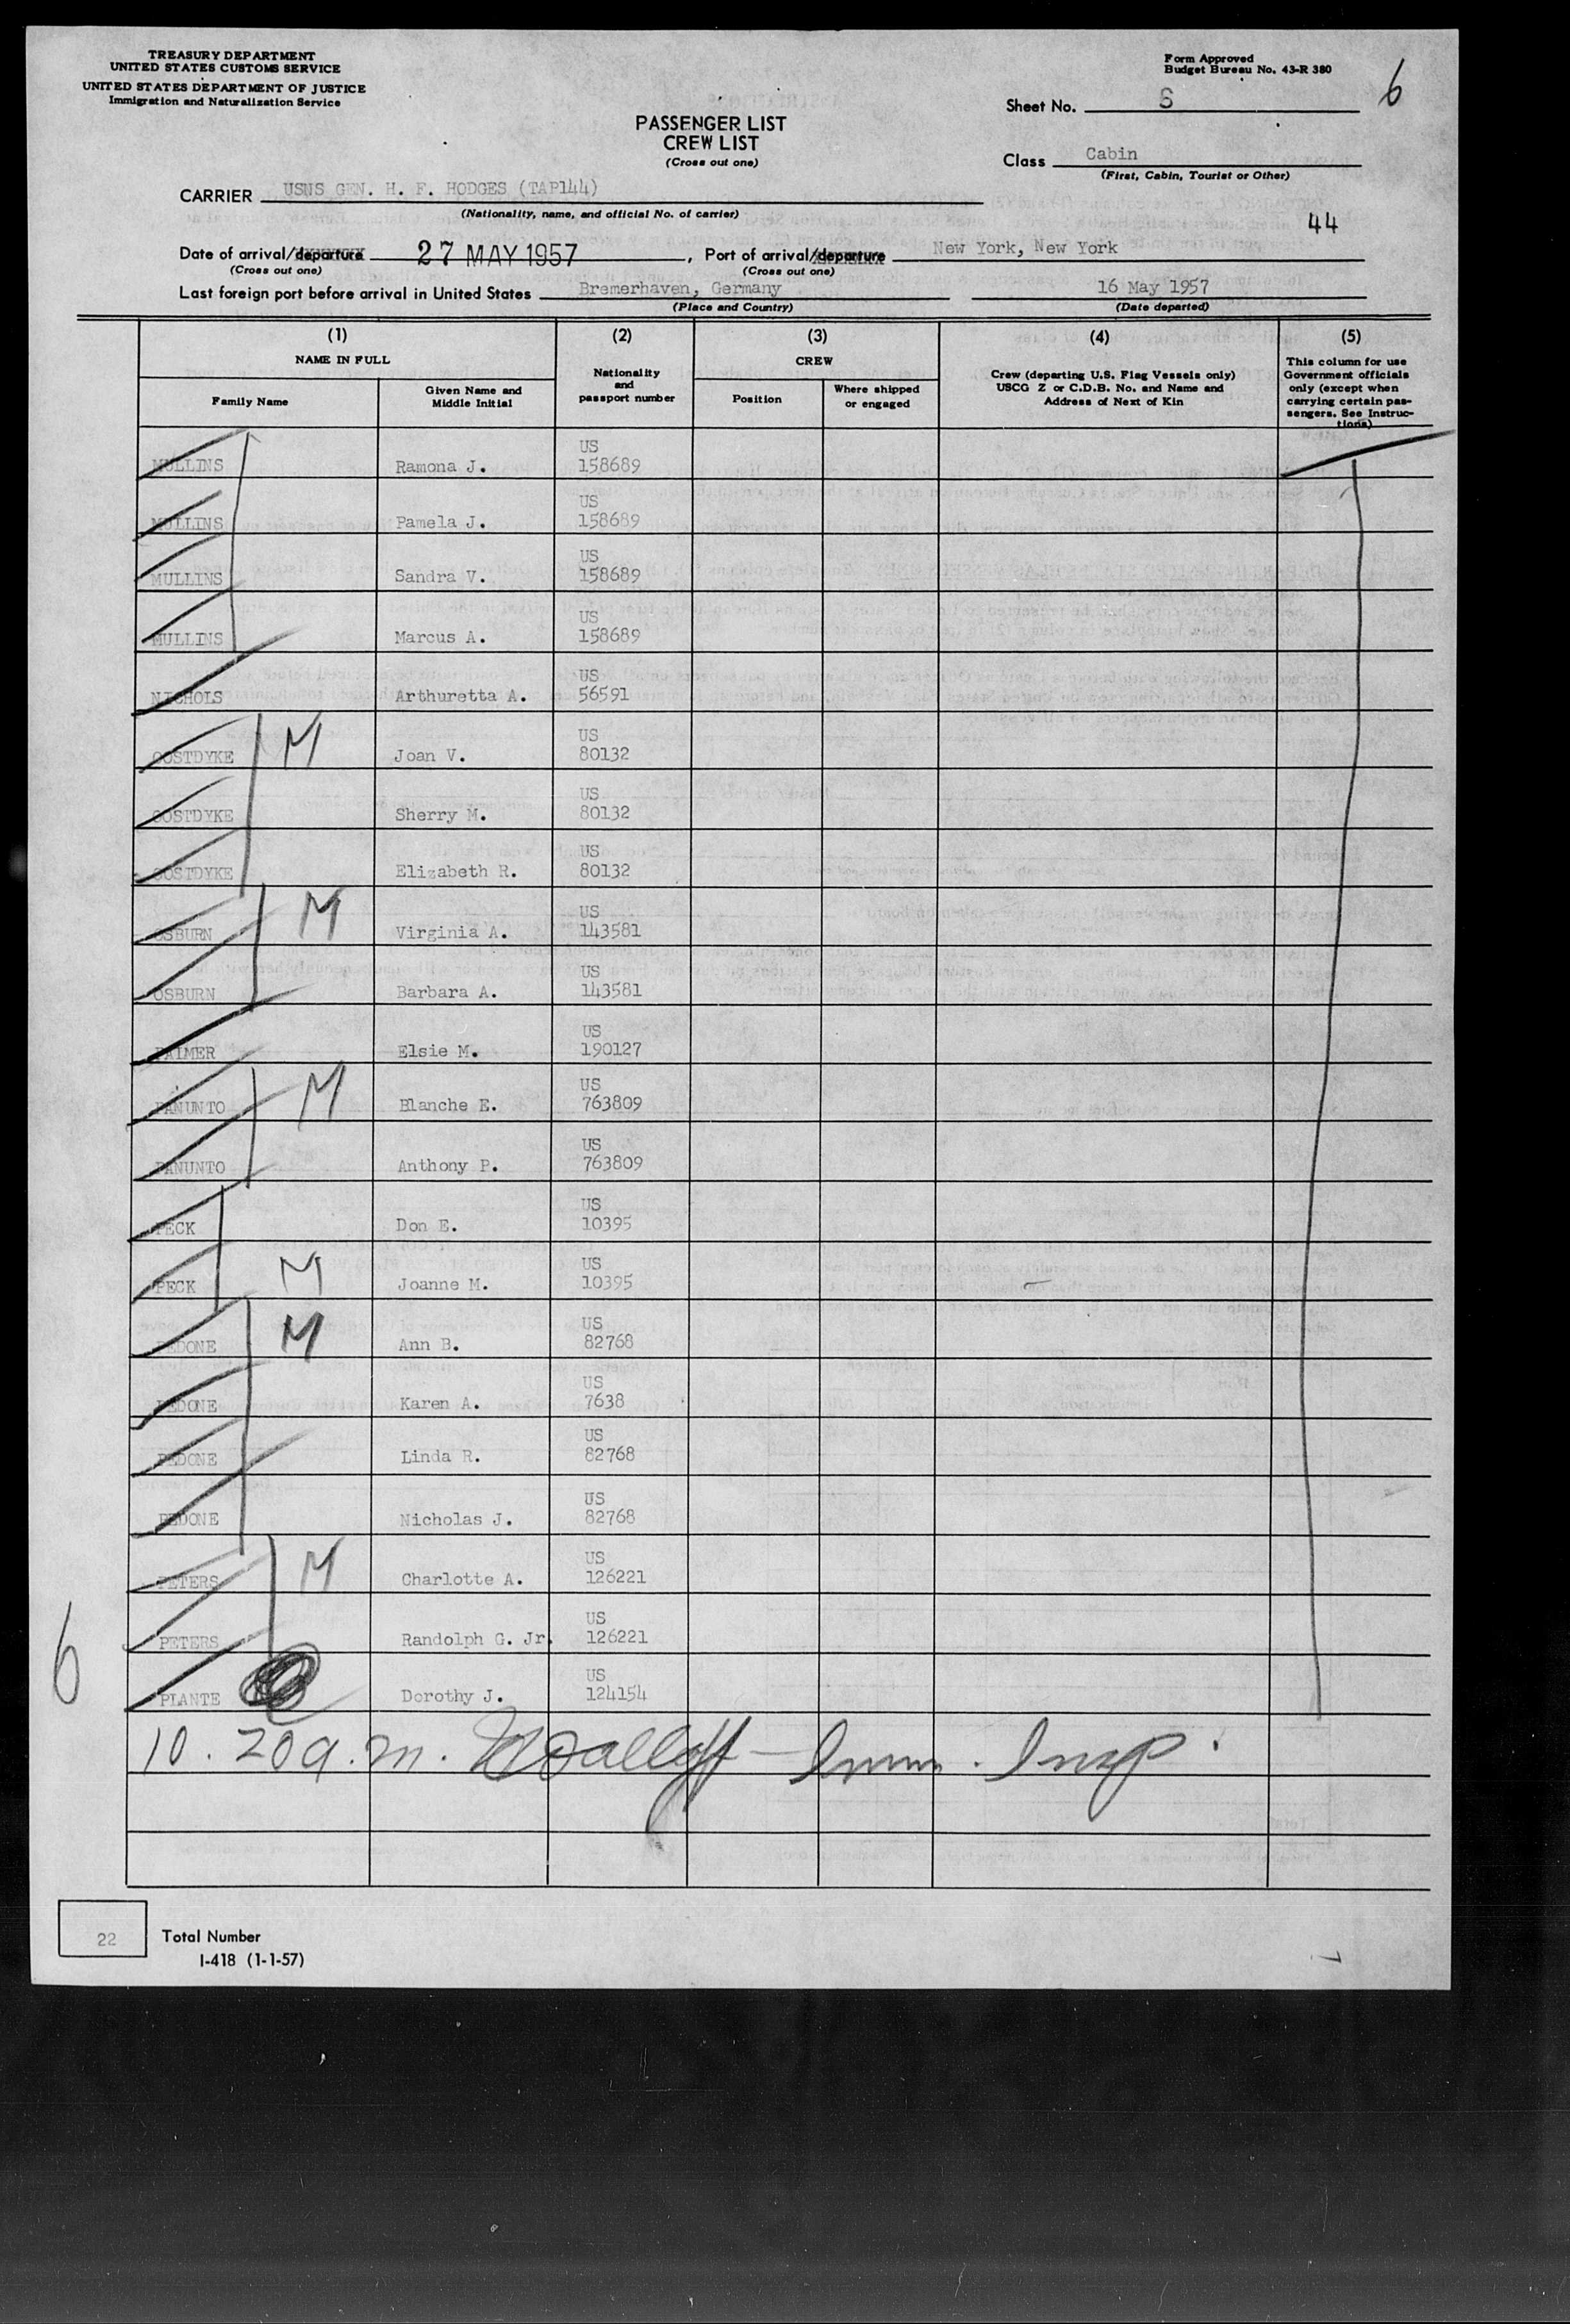 TREASURY DEPARTMENT
UNITED STATES CUSTOMS SERVICE
UNITED STATES DEPARTMENT OF JUSTICE
Immigration and Naturalization Service
Form Approved
Budget Bureau No. 43-R 380
6
Sheet No. 6
PASSENGER LIST
CREW LIST
(Cross out one)
Class Cabin
(First, Cabin, Tourist or Other)
CARRIER USNS GEN. H. F. HODGES (TAP144)
(Nationality, name, and official No. of carrier)
44
Date of arrival/departure 27 MAY 1957, Port of arrival/departure New York, New York
(Cross out one) (Cross out one)
Last foreign port before arrival in United States Bremerhaven, Germany 16 May 1957
(Place and Country) (Date departed)
(1) (2) (3) (4) (5)
NAME IN FULL
Family Name
Given Name and Middle Initial
Nationality and passport number
CREW
Position
Where shipped or engaged
Crew (departing U.S. Flag Vessels only)
USCG Z or C.D.B. No. and Name and
Address of Next of Kin
This column for use
Government officials
only (except when
carrying certain pas-
sengers. See Instruc-
tions)
MULLINS Ramona J. US 158689
MULLINS Pamela J. US 158689
MULLINS Sandra V. US 158689
MULLINS Marcus A. US 158689
NICHOLS Arthuretta A. US 56591
OOSTDYKE M Joan V. US 80132
OOSTDYKE Sherry M. US 80132
OOSTDYKE Elizabeth R. US 80132
OSBURN M Virginia A. US 143581
OSBURN Barbara A. US 143581
PALMER Elsie M. US 190127
PANUNTO M Blanche E. US 763809
PANUNTO Anthony P. US 763809
PECK Don E. US 10395
PECK M Joanne M. US 10395
PEDONE M Ann B. US 82768
PEDONE Karen A. US 7638
PEDONE Linda R. US 82768
PEDONE Nicholas J. US 82768
PETERS M Charlotte A. US 126221
PETERS Randolph G. Jr. US 126221
6
PLANTE Dorothy J. US 124154
10.20 a.m. - Imm. Insp.
22 Total Number
I-418 (1-1-57)